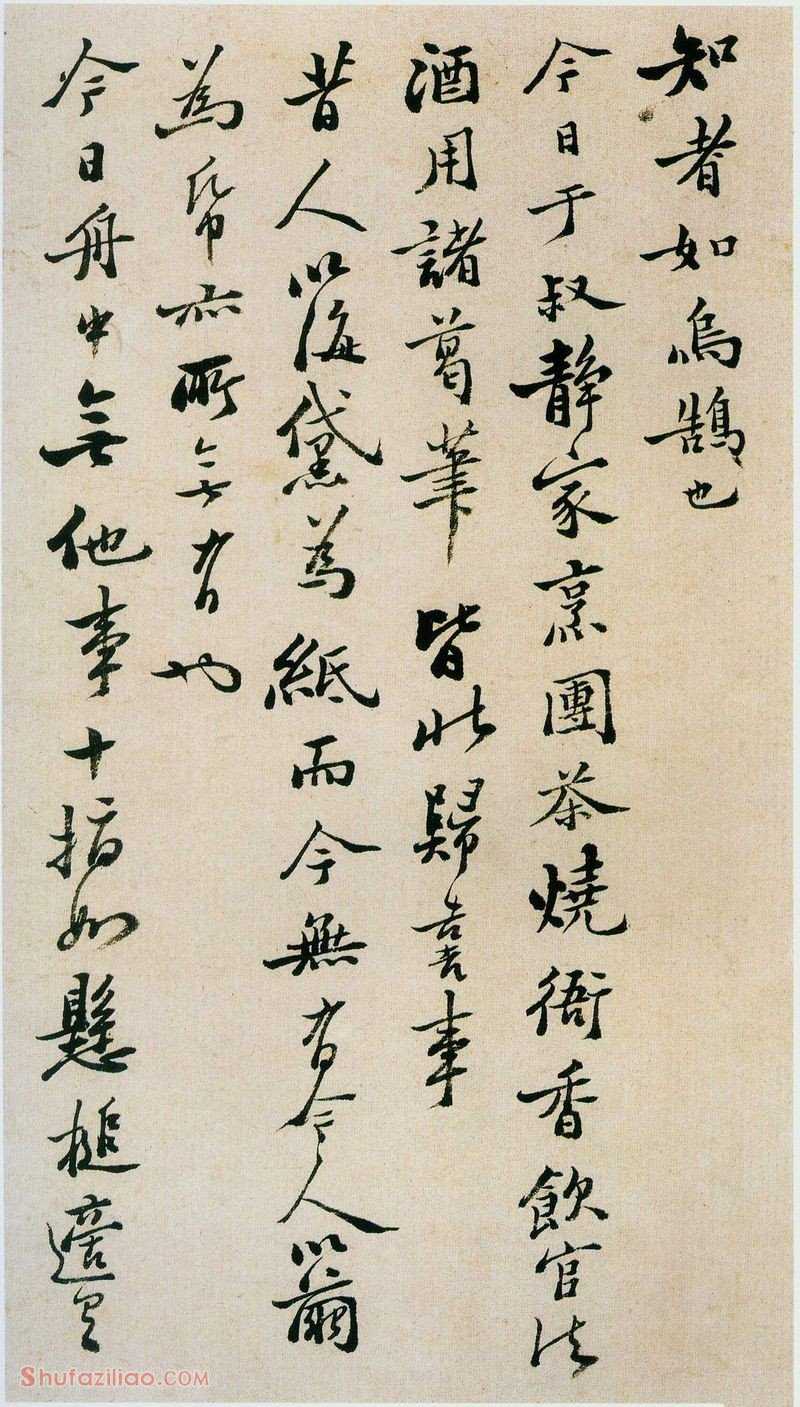 知者如嗚鵠也
今日于叔静家烹團茶燒衙香飲官法
酒用諸葛筆皆北歸喜事
昔人以海黛為紙而今無有今人以繭
為帋亦所無有也
今日舟中無他事十指如懸槌適
Shufaziliao.COM